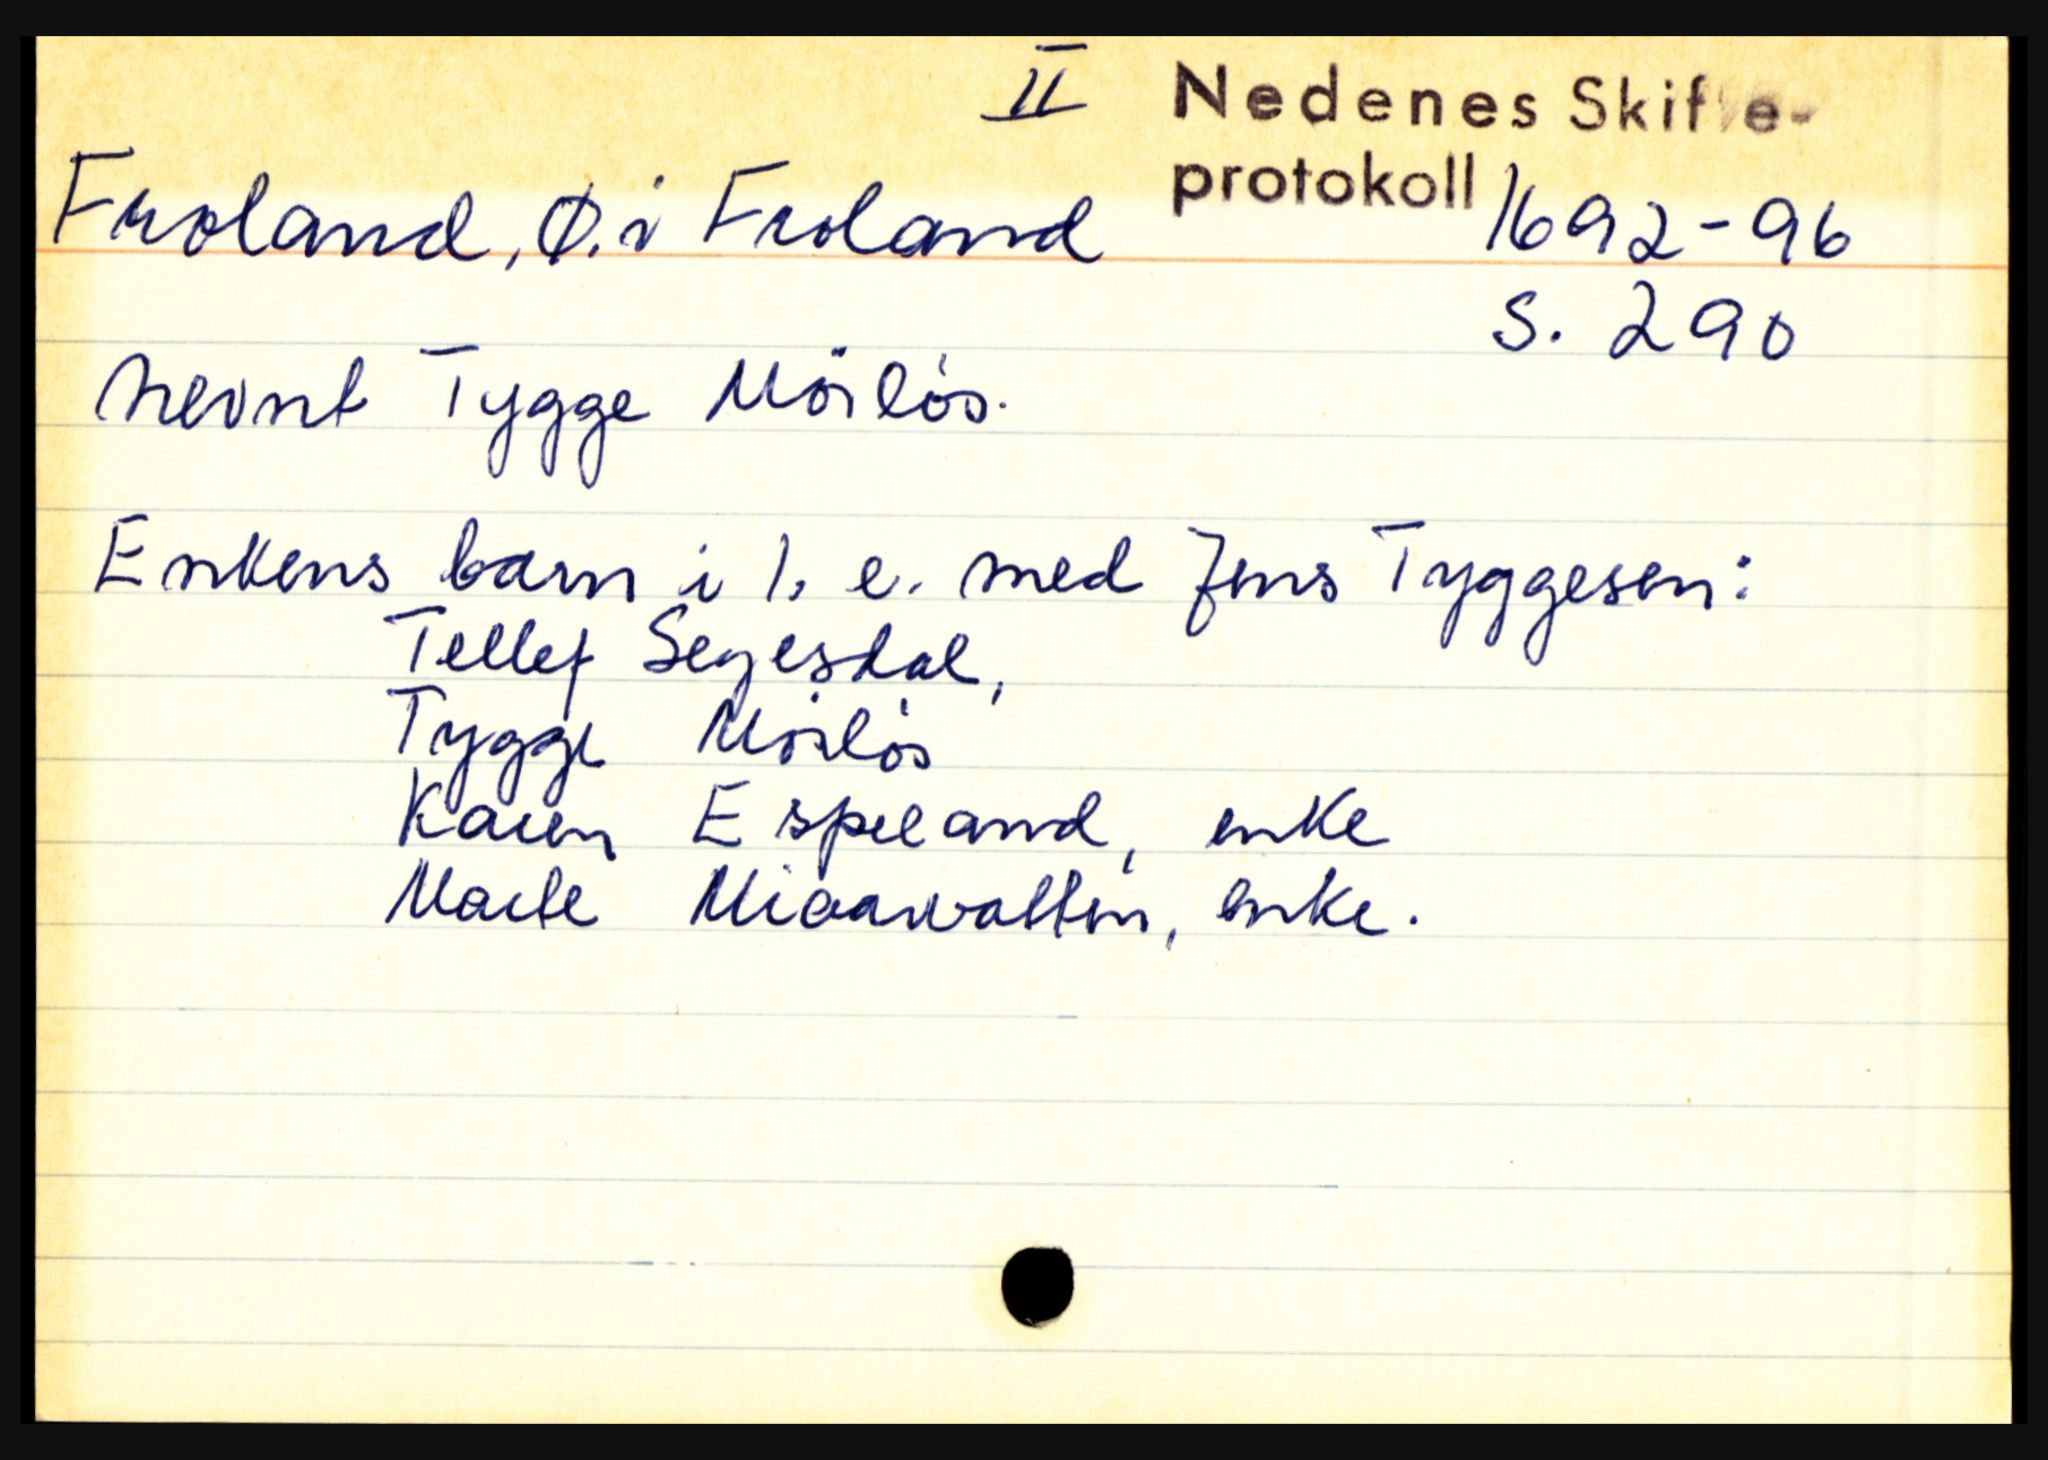 II Nedenes Skifte-
protokoll 1692-96
Froland, Ø. i Froland
S. 290
nevnt Tygge Mörlös.
Enkens barn i 1. e. med Jens Tyggesen:
Tellef Seyesdal,
Tygge Mörlös
Karen Espeland, enke
Marte enke.